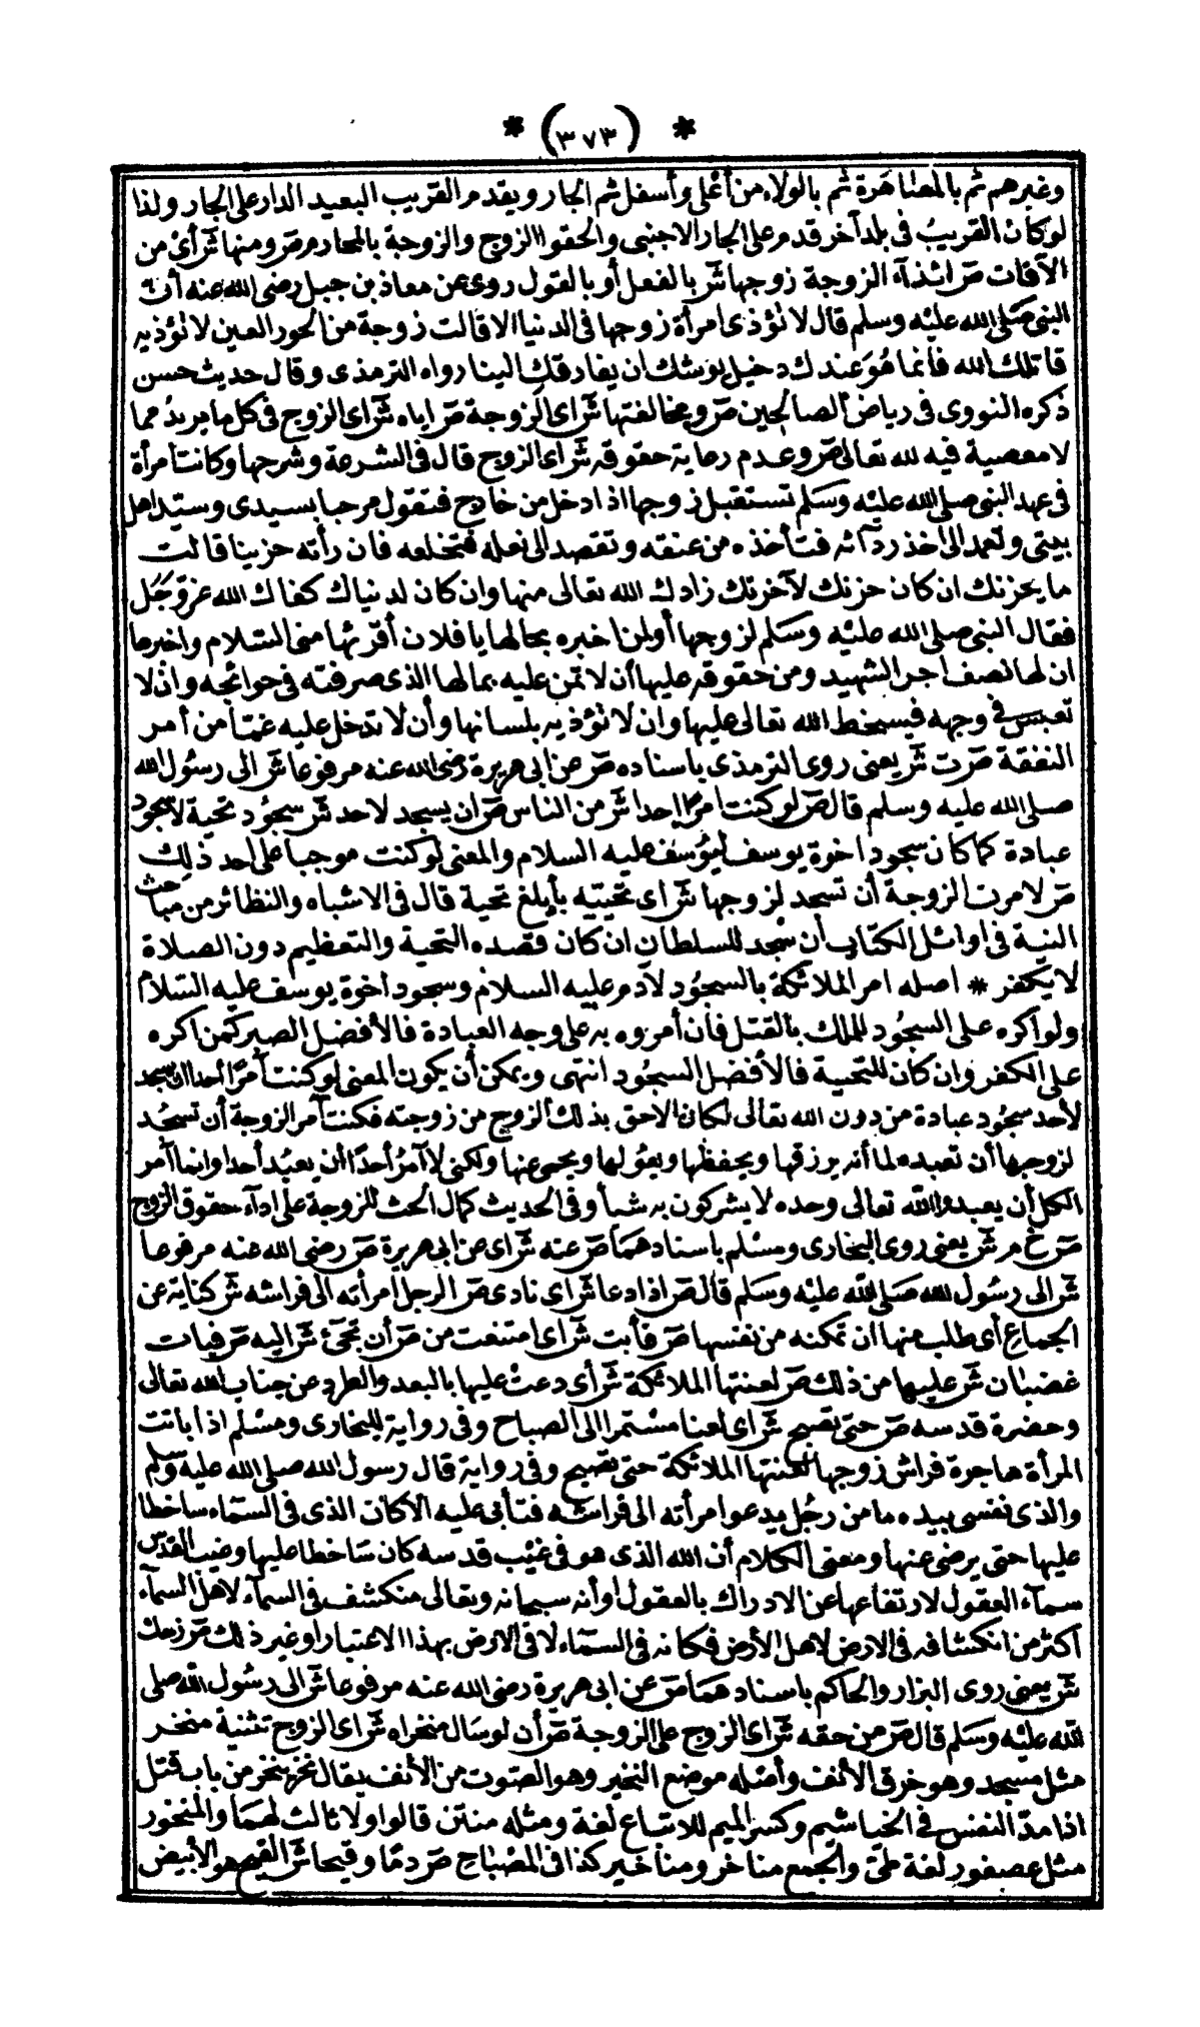 * (٣٧٣) *
وغيرهم ثم بالمصاهرة ثم بالولاء من أعلى وأسفل ثم الجار ويقدم القريب البعيد الدار على الجار ولذا
لو كان القريب فى بلد آخر قدم على الجار الاجنبى والحقوا الزوج والزوجة بالمحارم صر ومنها شر أى من
الآفات صر ائذآء الزوجة زوجها شر بالفعل أو بالقول روى عن معاذ بن جبل رضى الله عنه أن
النبى صلى الله عليه وسلم قال لا تؤذى امرأة زوجها فى الدنيا الا قالت زوجة من الحور العين لا تؤذيه
قاتلك الله فانما هو عندك دخيل يوشك ان يفارقك الينا رواه الترمذى وقال حديث حسن
ذكره النووى فى رياض الصالحين صر ومخالفتها شر اى الزوجة صر اياه شر اى الزوج فى كل ما يريد مما
لا معصية فيه لله تعالى صر وعدم رعاية حقوقه شر اى الزوج قال فى الشرعة وشرحها وكانت امرأة
فى عهد النبى صلى الله عليه وسلم تستقبل زوجها اذا دخل من خارج فتقول مرحبا بسيدى وسيد اهل
بيتى وتعمد الى اخذ ردآئه فتأخذه من عنقه وتقصد الى نعله فتخلعه فان رأته حزينا قالت
ما يحزنك ان كان حزنك لآخرتك زادك الله تعالى منها وان كان لدنياك كفاك الله عز وجل
فقال النبى صلى الله عليه وسلم لزوجها أو لمن اخبره بحالها يا فلان أقرئها منى السلام واخبرها
ان لها نصف اجر الشهيد ومن حقوقه عليها أن لا تمن عليه بمالها الذى صرفته فى حوائجه وان لا
تعبس فى وجهه فيسخط الله تعالى عليها وان لا تؤذيه بلسانها وأن لا تدخل عليه غمّا من أمر
النفقة صر ت شر يعنى روى الترمذى باسناده صر عن ابى هريرة رضى الله عنه مرفوعا شر الى رسول الله
صلى الله عليه وسلم قال صر لو كنت امرًا احدا شر من الناس صر ان يسجد لاحد شر سجود تحية لا سجود
عبادة كما كان سجود اخوة يوسف ليوسف عليه السلام والمعنى لو كنت موجبا على احد ذلك
صر لامرت الزوجة أن تسجد لزوجها شر اى تحيته بأبلغ تحية قال فى الاشباه والنظائر من مباحث
النية فى اوائل الكتاب أن سجد للسلطان ان كان قصده التحية والتعظيم دون الصلاة
لا يكفر * اصله امر الملائكة بالسجود لآدم عليه السلام وسجود اخوة يوسف عليه السلام
ولو اكره على السجود للملك بالقتل فان أمروه به على وجه العبادة فالأفضل الصبر كمن اكره
على الكفر وان كان للتحية فالأفضل السجود انتهى ويمكن أن يكون المعنى لو كنت آمرًا أحدا ان يسجد
لأحد سجود عبادة من دون الله تعالى لكان الاحق بذلك الزوج من زوجته فكنت آمر الزوجة أن تسجد
لزوجها أن تعبده لما أنه يرزقها ويحفظها ويعولها ويحمى عنها ولكنى لا آمرُ أحدًا أن يعبُد أحدا وانما آمر
الكل أن يعبدوا الله تعالى وحده لا يشركون به شيأ وفى الحديث كمال الحث للزوجة على ادآء حقوق الزوج
صر خ م شر يعنى روى البخارى ومسلم باسنادهما صر عنه شر اى عن ابى هريرة صر رضى الله عنه مرفوعا
شر الى رسول الله صلى الله عليه وسلم قال صر اذا دعا شر اى نادى صر الرجل امرأته الى فراشه شر كناية عن
الجماع أى طلب منها ان تمكنه من نفسها صر فأبت شر اى امتنعت من صر أن تجئ شر اليه صر فبات
غضبان شر عليها من ذلك صر لعنتها الملائكة شر أى دعت عليها بالبعد والطرد عن جناب الله تعالى
وحضرة قدسه صر حتى تصبح شر اى لعنا مستمرا الى الصباح وفى رواية للبخارى ومسلم اذا باتت
المرأة هاجرة فراش زوجها لعنتها الملائكة حتى تصبح وفى رواية قال رسول الله صلى الله عليه وسلم
والذى نفسى بيده ما من رجل يدعو امرأته الى فراشه فتأبى عليه الا كان الذى فى السماء ساخطا
عليها حتى يرضى عنها ومعنى الكلام أن الله الذى هو فى غيب قدسه كان ساخطا عليها وغيب القدس
سمآء العقول لارتفاعها عن الادراك بالعقول او أنه سبحانه وتعالى منكشف فى السمآء لاهل السمآء
اكثر من انكشافه فى الارض لاهل الأرض فكانه فى السماء لا فى الارض بهذا الاعتبار او غير ذلك صر زحك
شر يعنى روى البزار والحاكم باسنادهما صر عن ابى هريرة رضى الله عنه مرفوعا شر الى رسول الله صلى
الله عليه وسلم قال صر من حقه شر اى الزوج على الزوجة صر أن لو سال منخراه شر اى الزوج تثنية منخر
مثل مسجد وهو خرق الأنف وأصله موضع النخير وهو الصوت من الأنف يقال نخر ينخر من باب قتل
اذا مدّ النفس فى الخياشيم وكسر الميم للاتباع لغة ومثله منتن قالوا ولا ثالث لهما والمنخور
مثل عصفور لغة طيّ والجمع مناخر ومناخير كذا فى المصباح صر دمًا وقيحا شر القيح هو الأبيض